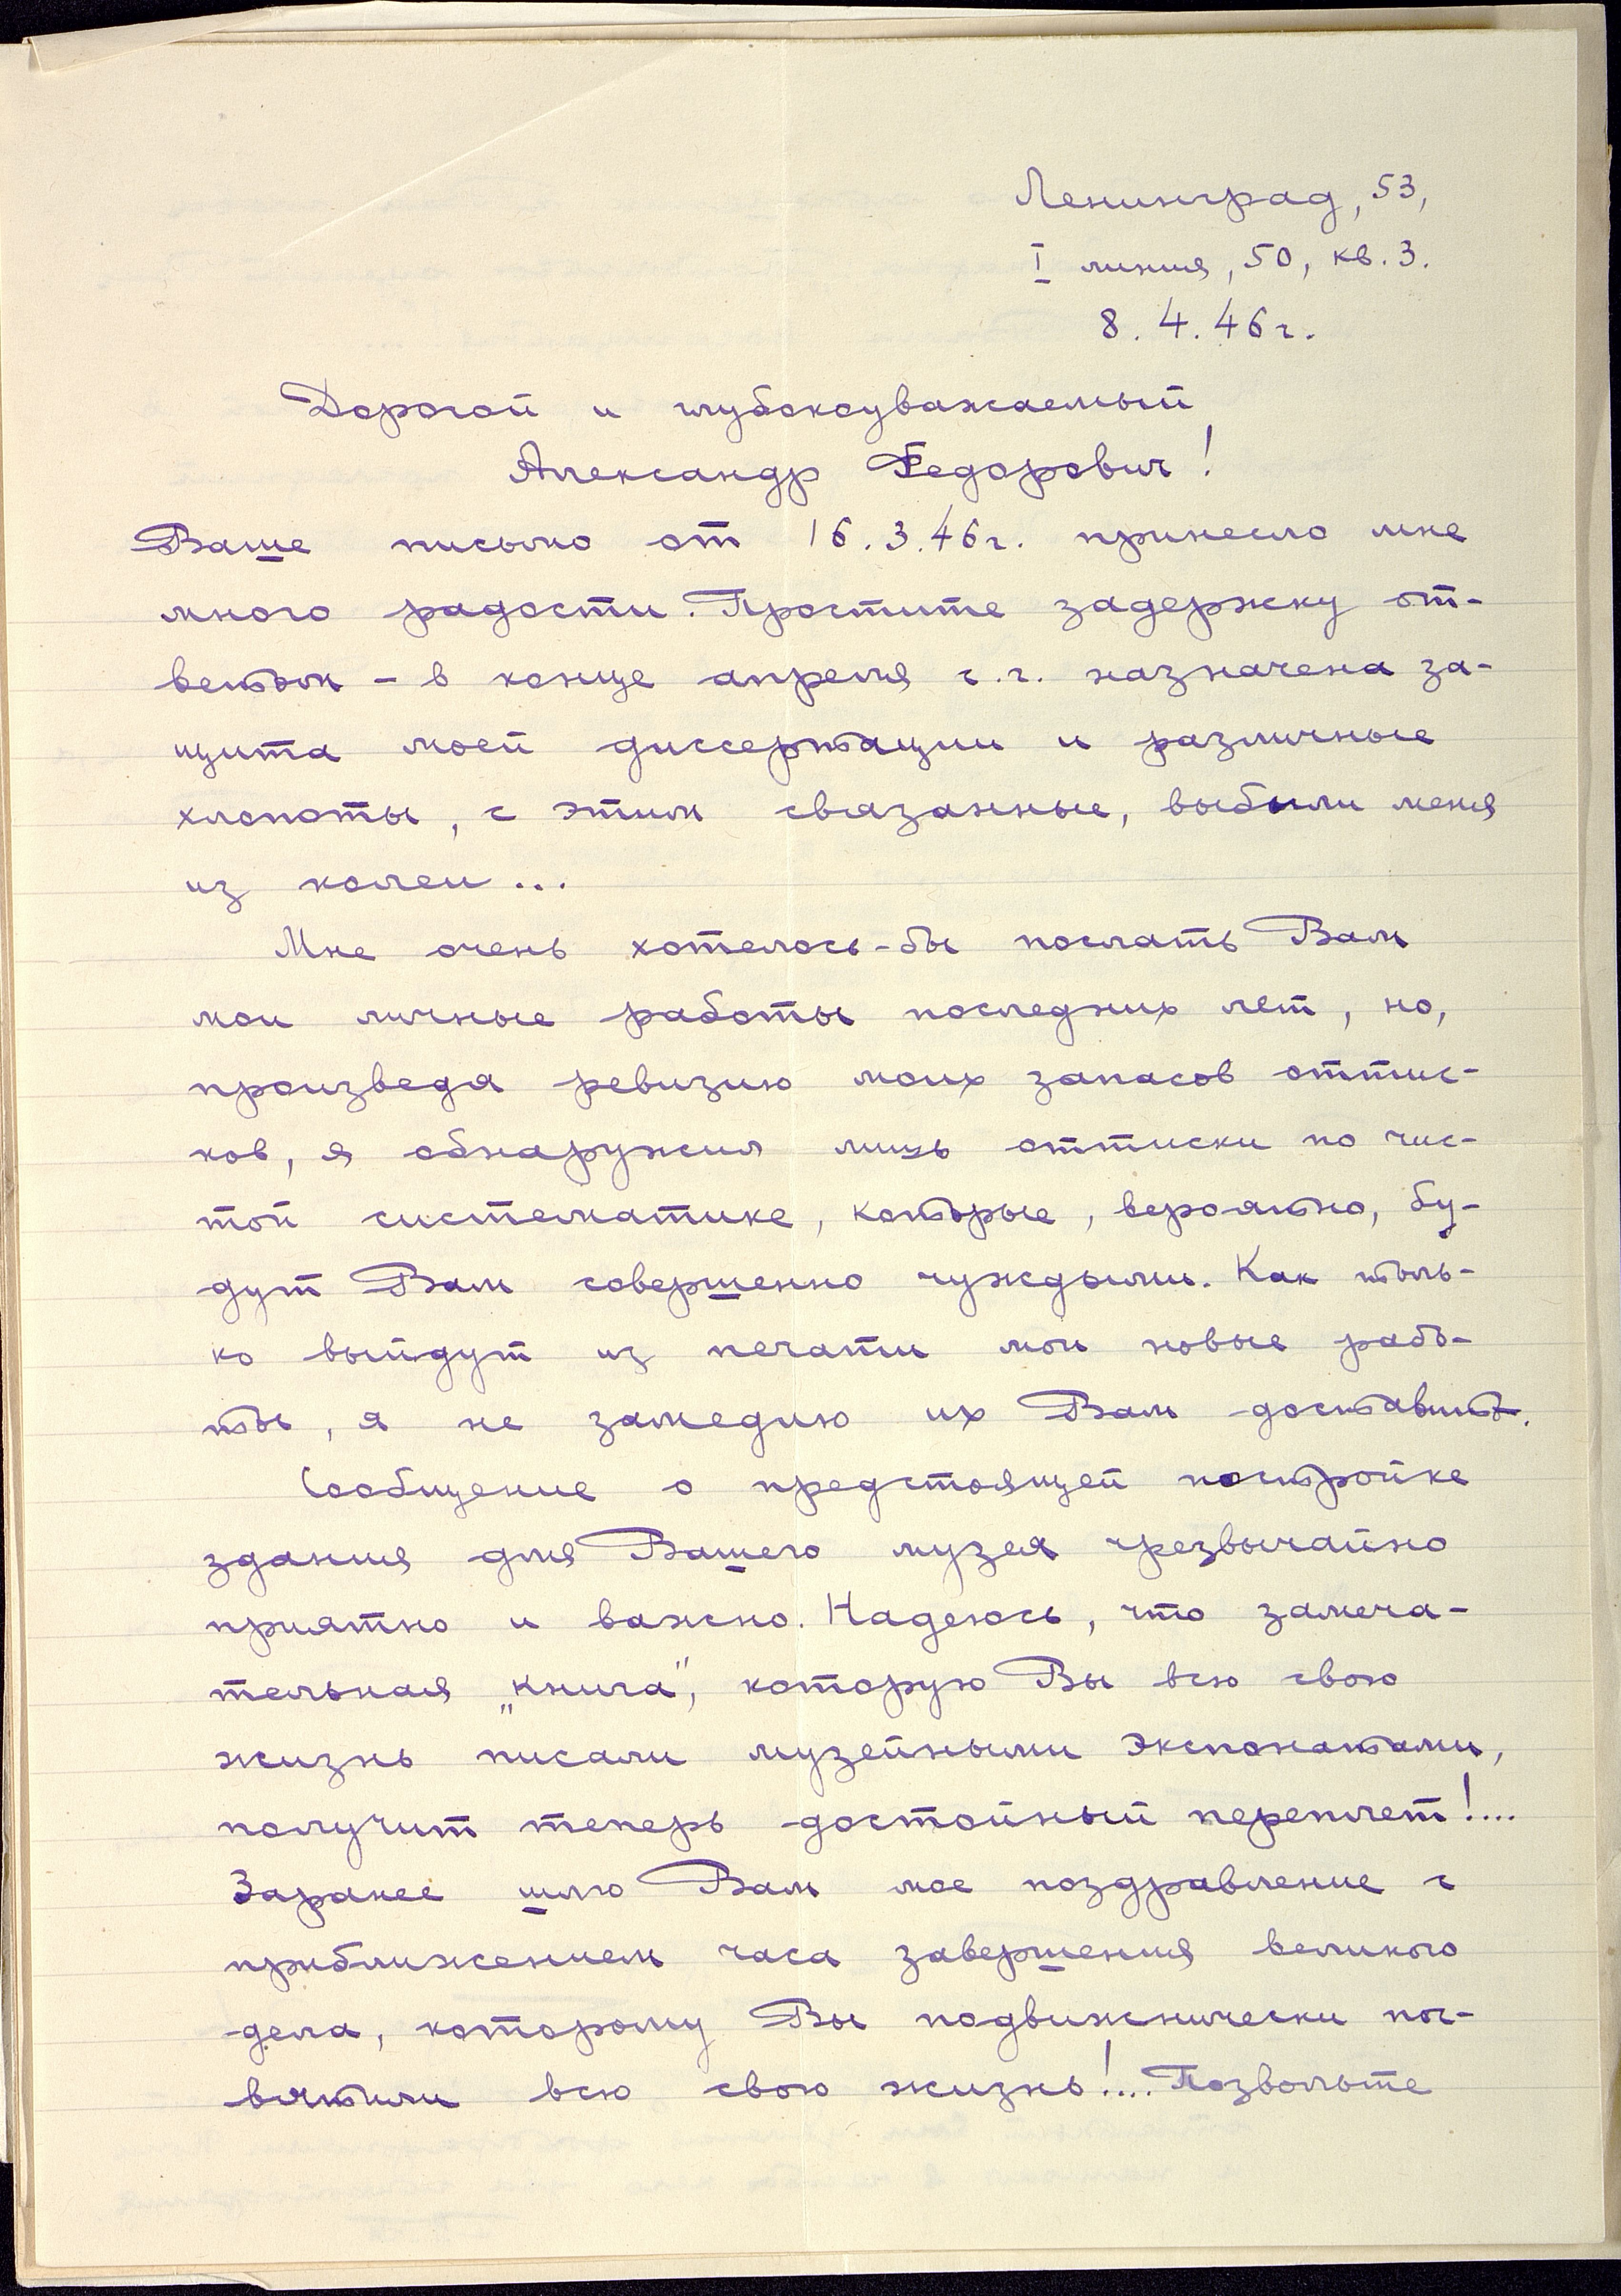 Ленинград, 53,
I линия, 50, кв. 3.
8. 4. 46 г.
Дорогой и глубокоуважаемый
Александр Федорович!
Ваше письмо от 16.3.46 г. принесло мне
много радости. Простите задержку от-
ветом – в конце апреля с.г. назначена за-
щита моей диссертации и различные
хлопоты, с этим связанные, выбили меня
из колеи...
Мне очень хотелось-бы послать Вам
мои личные работы последних лет, но,
произведя ревизию моих запасов оттис-
ков, я обнаружил лишь оттиски по чис-
той систематике, которые, вероятно, бу-
дут Вам совершенно чуждыми. Как толь-
ко выйдут из печати мои новые рабо-
ты, я не замедлю их Вам доставить.
Сообщение о предстоящей постройке
здания для Вашего музея чрезвычайно
приятно и важно. Надеюсь, что замеча-
тельная „книга", которую Вы всю свою
жизнь писали музейными экспонатами,
получит теперь достойный переплет!...
Заранее шлю Вам мое поздравление с
приближением часа завершения великого
дела, которому Вы подвижнически пос-
вятили всю свою жизнь!... Позвольте